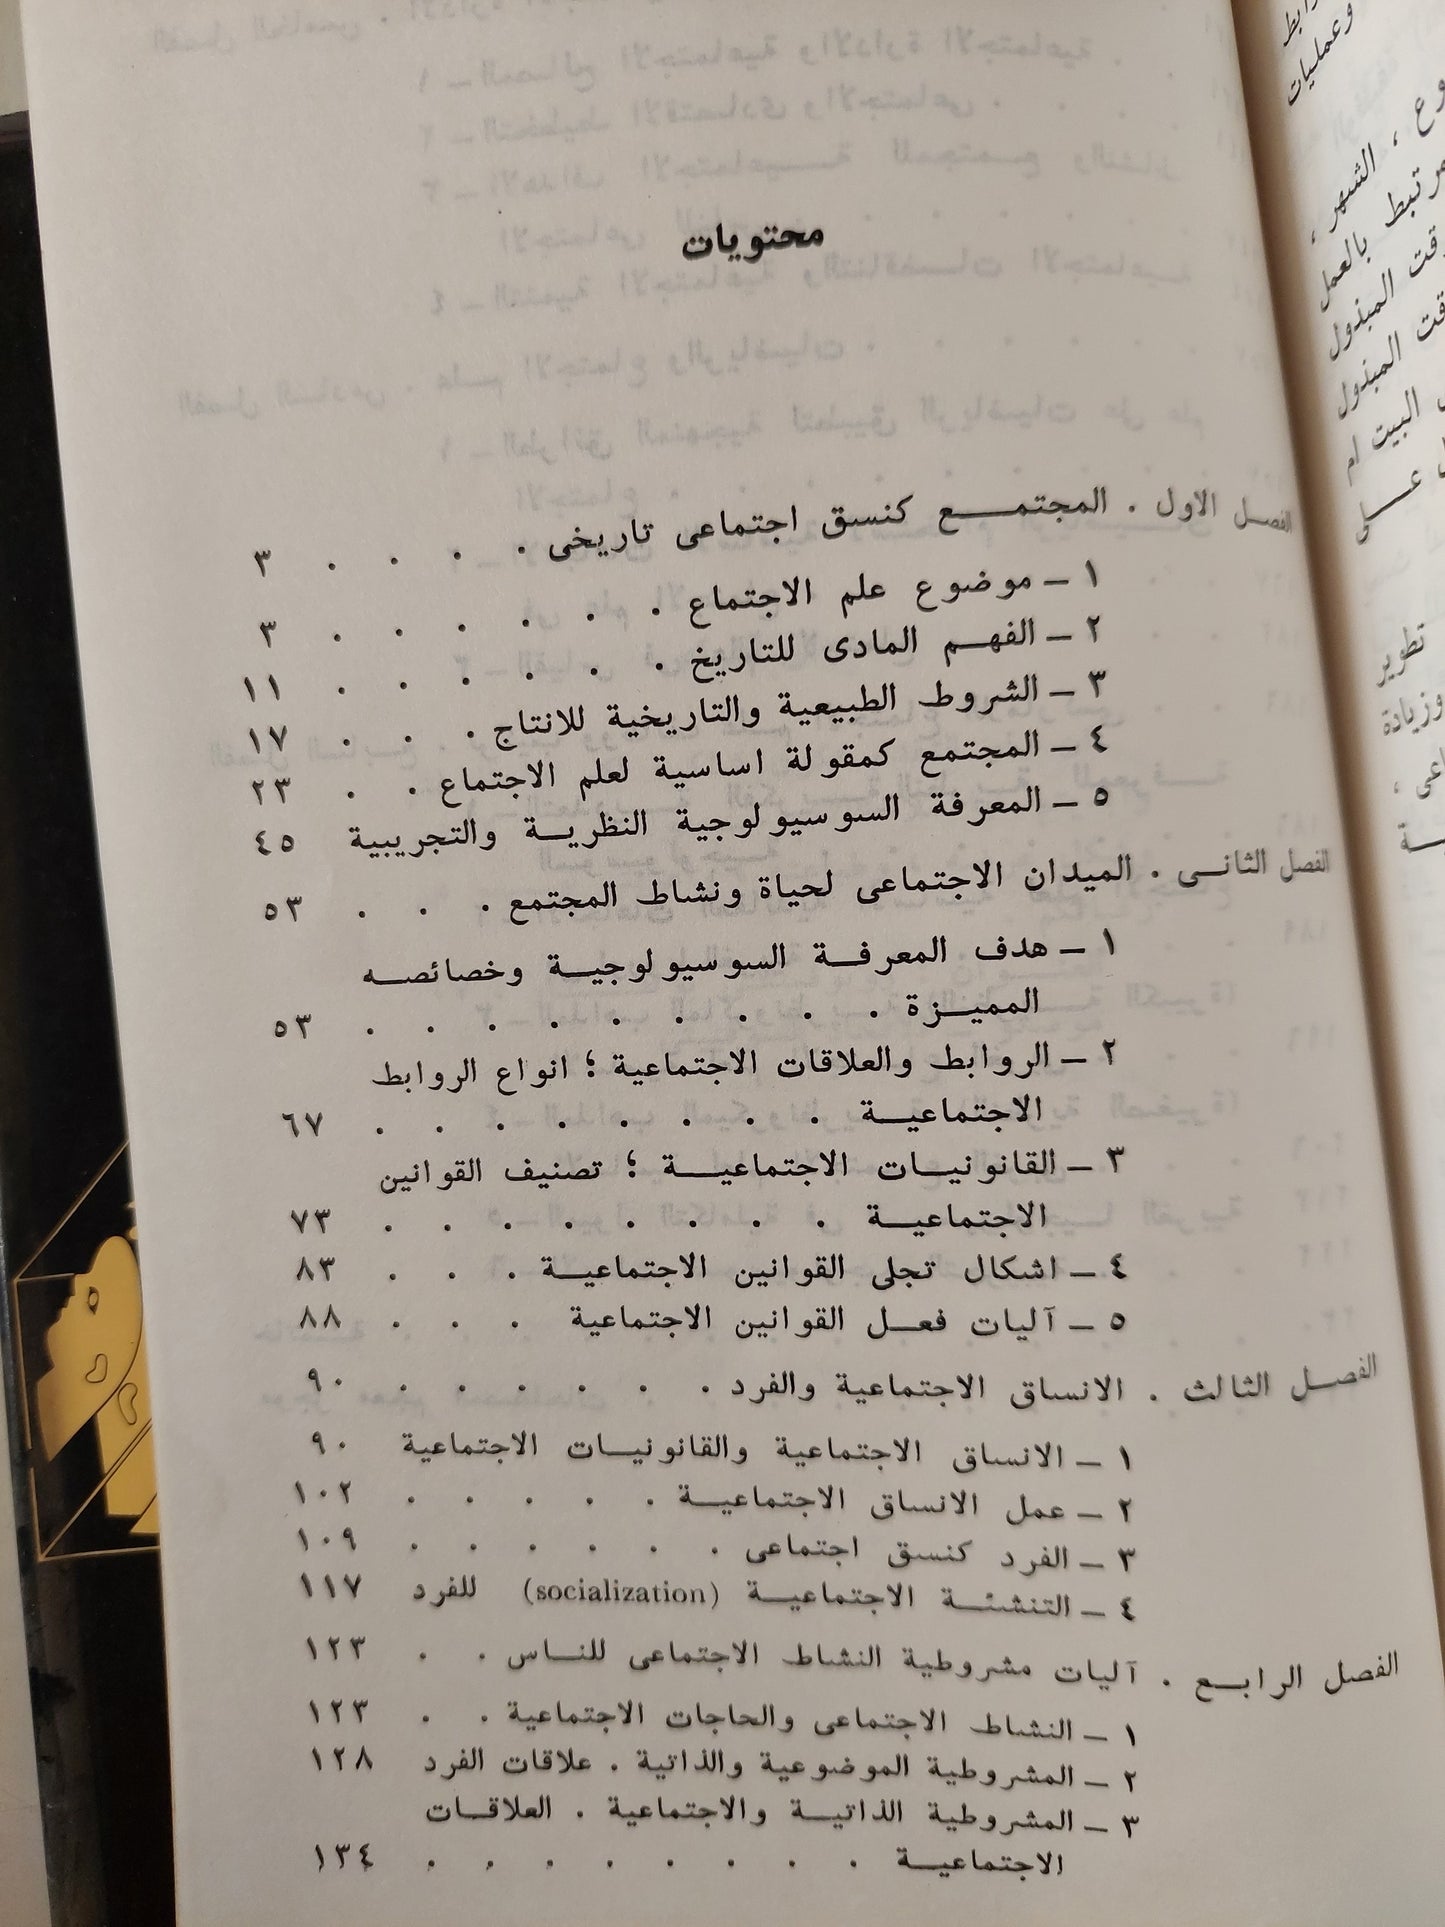 محتويات
الفصل الاول . المجتمـــع كنسق اجتماعى تاريخى . . . . ٣
١ ــ موضوع علم الاجتماع . . . . . . ٣
٢ ــ الفهــم المادى للتاريخ . . . . . . ١١
٣ ــ الشروط الطبيعية والتاريخية للانتاج . . . ١٧
٤ ــ المجتمع كمقولة اساسية لعلم الاجتماع . . ٢٣
٥ ــ المعرفة السوسيولوجية النظريــة والتجريبية ٤٥
الفصل الثانــى . الميدان الاجتماعى لحياة ونشاط المجتمع . . . ٥٣
١ ــ هدف المعرفــة السوسيولوجيــة وخصائصــه
المميــزة . . . . . . . . . ٥٣
٢ ــ الروابط والعلاقات الاجتماعية ؛ انواع الروابط
الاجتماعيــة . . . . . . . . ٦٧
٣ ــ القانونيــات الاجتماعيــة ؛ تصنيف القوانين
الاجتماعيــة . . . . . . . . ٧٣
٤ ــ اشكال تجلى القوانين الاجتماعيــة . . . ٨٣
٥ ــ آليات فعــل القوانين الاجتماعية . . . ٨٨
الفصــل الثالث . الانساق الاجتماعية والفرد . . . . . . ٩٠
١ ــ الانساق الاجتماعية والقانونيــات الاجتماعية ٩٠
٢ ــ عمل الانساق الاجتماعيــة . . . . . ١٠٢
٣ ــ الفرد كنسق اجتماعى . . . . . . ١٠٩
٤ ــ التنشئــة الاجتماعيــة (socialization) للفرد ١١٧
الفصل الرابــع . آليات مشروطية النشاط الاجتماعى للنــاس . . ١٢٣
١ ــ النشاط الاجتماعى والحاجات الاجتماعية . . ١٢٣
٢ ــ المشروطية الموضوعية والذاتية . علاقات الفرد ١٢٨
٣ ــ المشروطية الذاتيــة والاجتماعية . العلاقــات
الاجتماعيــة . . . . . . . . ١٣٤
وعمليات
الشهر ،
بالعمل
المبذول
المبذول
البيت ام
علــى
تطوير
وزيادة